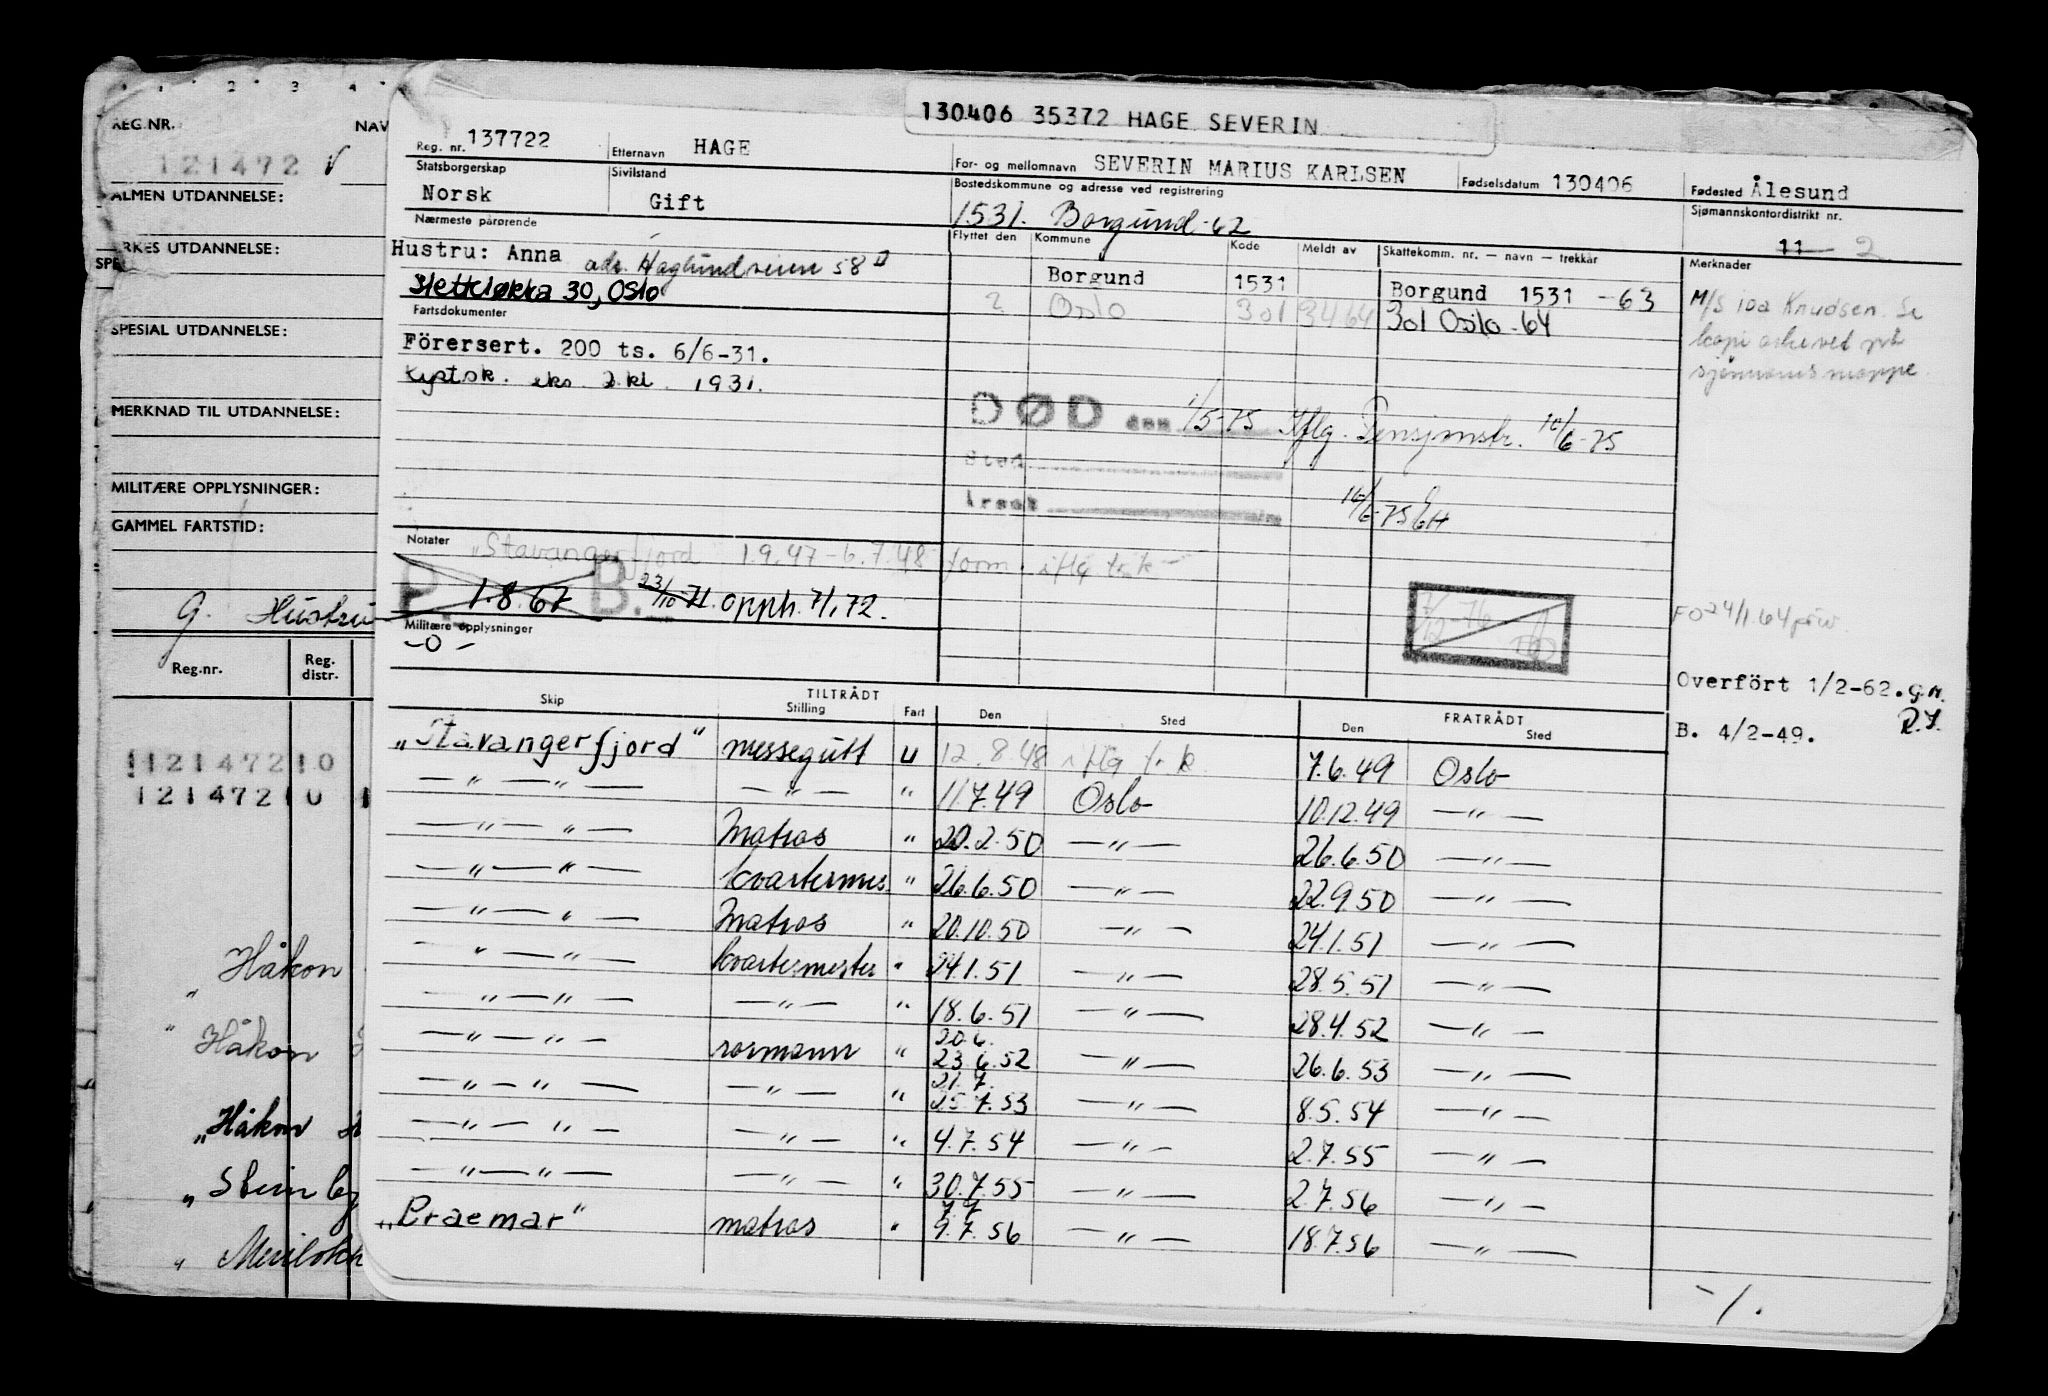 1 2 3 4
REG.NR. NAV
121472 V
ALMEN UTDANNELSE:
YRKES UTDANNELSE:
SPE
SPESIAL UTDANNELSE:
MERKNAD TIL UTDANNELSE:
MILITÆRE OPPLYSNINGER:
GAMMEL FARTSTID:
G. Hustru
Reg.nr. Reg. distr.
121472 0
121472 0 1
Håkon
„ Håkon
„Håkon
„
„
130406 35372 HAGE SEVERIN
Reg. nr. 137722 Etternavn HAGE For- og mellomnavn SEVERIN MARIUS KARLSEN Fødselsdatum 130406 Fødested Ålesund
Statsborgerskap Norsk Sivilstand Gift Bostedskommune og adresse ved registrering 1531. Borgund-62 Sjømannskontordistrikt nr. 11 2
Nærmeste pårørende Flyttet den Kommune Kode Meldt av Skattekomm. nr. — navn — trekkår Merknader
Hustru: Anna adr. Haglundveien 58 D
Sletteløkka 30, Oslo
Borgund 1531 Borgund 1531 -63
2 Oslo 301 3464 301 Oslo-64
M/S Ida Knudsen. Se
kopi arkivert på
sjømannsmappe.
Fartsdokumenter
Förersert. 200 ts. 6/6-31.
Kystsk. eks. 2.kl. 1931.
DØD den 1/5-75 Iflg. Pensjonstr. 10/6-75
Sted
Årsak
16/6-75 EH
Notater „Stavangerfjord 1.9.47-6.7.48 iflg t.k
P. 1.8.67 B. 23/10 71. opph. 7/1.72.
Militære opplysninger
-0-
7/12-76
FO 24/1.64
Overfört 1/2-62. G.N.
R.J.
B. 4/2-49.
TILTRÅDT FRATRÅDT
Skip Stilling Fart Den Sted Den Sted
„Stavangerfjord" messegutt U 12.8.48 iflg t.k. 7.6.49 Oslo
—"—"— —"— " 11.7.49 Oslo 10.12.49 —"—
—"—"— Matros " 20.2.50 —"— 26.6.50 —"—
—"—"— kvartermes " 26.6.50 —"— 22.9.50 —"—
—"—"— Matros " 20.10.50 —"— 24.1.51 —"—
—"—"— kvartermester " 24.1.51 —"— 28.5.51 —"—
—"—"— —"— " 18.6.51 —"— 28.4.52 —"—
20.6.
—"—"— rormann " 23.6.52 —"— 26.6.53 —"—
21.7.
—"—"— —"— " 25.7.53 —"— 8.5.54 —"—
—"—"— —"— " 4.7.54 —"— 2.7.55 —"—
—"—"— —"— " 30.7.55 —"— 2.7.56 —"—
7.7
„Braemar" matros " 9.7.56 —"— 18.7.56 —"—
-/.